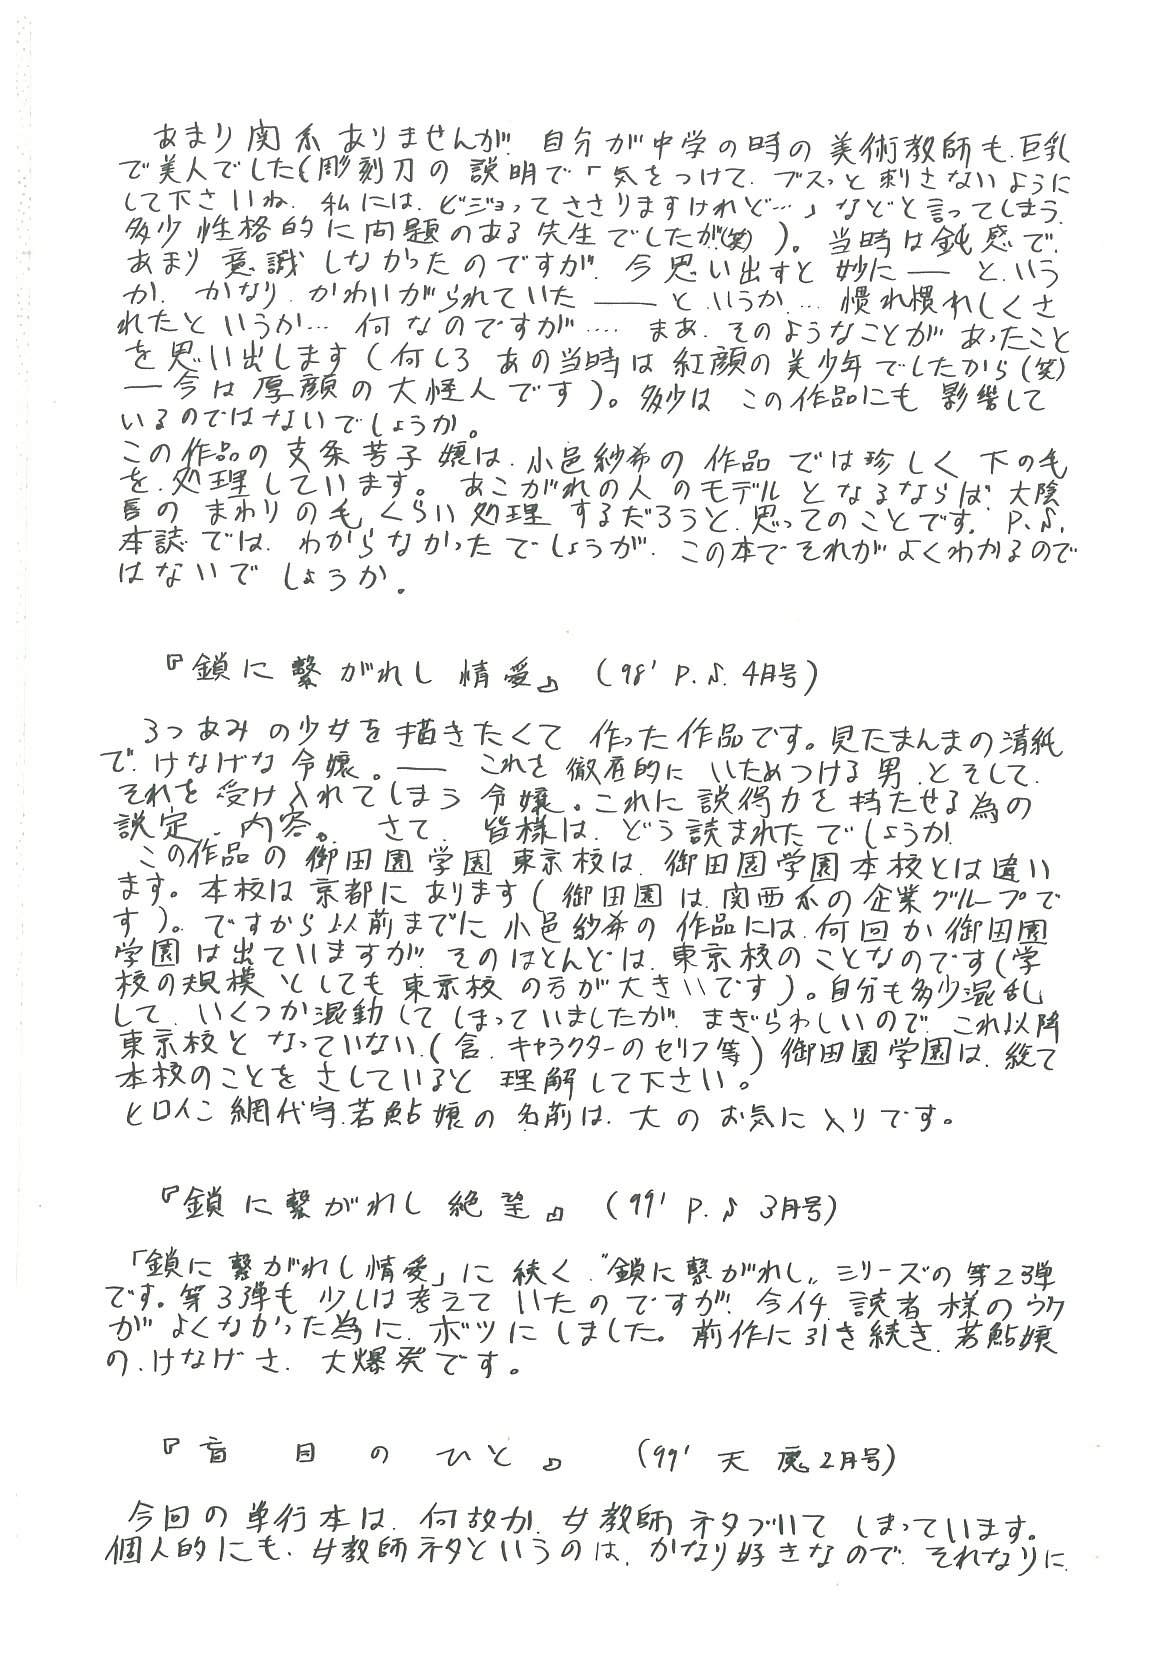 あまり関系ありませんが、自分が中学の時の美術教師も、巨乳
で美人でした(彫刻刀の説明で「気をつけて、ブスっと刺さないように
して下さいね、私には、ビジョってささりますけれど…」などと言ってしまう、
多少性格的に問題のある先生でしたが(笑))。当時は鈍感で、
あまり意識しなかったのですが、今思い出すと妙に――と、いう
か、かなり、かわいがられていた――と、いうか…慣れ慣れしくさ
れたというか…何なのですが…、まあ、そのようなことがあったこと
を思い出します(何しろあの当時は紅顔の美少年でしたから(笑)
―今は厚顔の大怪人です)。多少はこの作品にも影響して
いるのではないでしょうか。
この作品の支条芳子嬢は、小邑紗希の作品では珍しく下の毛
を、処理しています。あこがれの人のモデルとなるならば、大陰
唇のまわりの毛くらい処理するだろうと、思ってのことです。P.S.
本誌では、わからなかったでしょうが、この本でそれがよくわかるので
はないでしょうか。
『鎖に繫がれし情愛』(98' P.S. 4月号)
3つあみの少女を描きたくて作った作品です。見たまんまの清純
で、けなげな令嬢。――これを徹底的にいためつける男、とそして、
それを受け入れてしまう令嬢。これに説得力を持たせる為の
設定、内容。さて、皆様は、どう読まれたでしょうか
この作品の御田園学園東京校は、御田園学園本校とは違い
ます。本校は京都にあります(御田園は、関西系の企業グループで
す)。ですから以前までに小邑紗希の作品には、何回か御田園
学園は出ていますが、そのほとんどは、東京校のことなのです(学
校の規模としても東京校の方が大きいです)。自分も多少混乱
して、いくつか混動してしまっていましたが、まぎらわしいので、これ以降
東京校となっていない、(含、キャラクターのセリフ等)御田園学園は、総て
本校のことをさしていると理解して下さい。
ヒロイン網代守、若鮎嬢の名前は、大のお気に入りです。
『鎖に繫がれし絶望』(99' P.S 3月号)
「鎖に繫がれし情愛」に続く、"鎖に繫がれし"シリーズの第2弾
です。第3弾も少しは考えていたのですが、今イチ、読者様のウケ
がよくなかった為に、ボツにしました。前作に引き続き、若鮎嬢
の、けなげさ、大爆発です。
『盲目のひと』(99' 天魔2月号)
今回の単行本は、何故か、女教師ネタづいてしまっています。
個人的にも、女教師ネタというのは、かなり好きなので、それなりに、